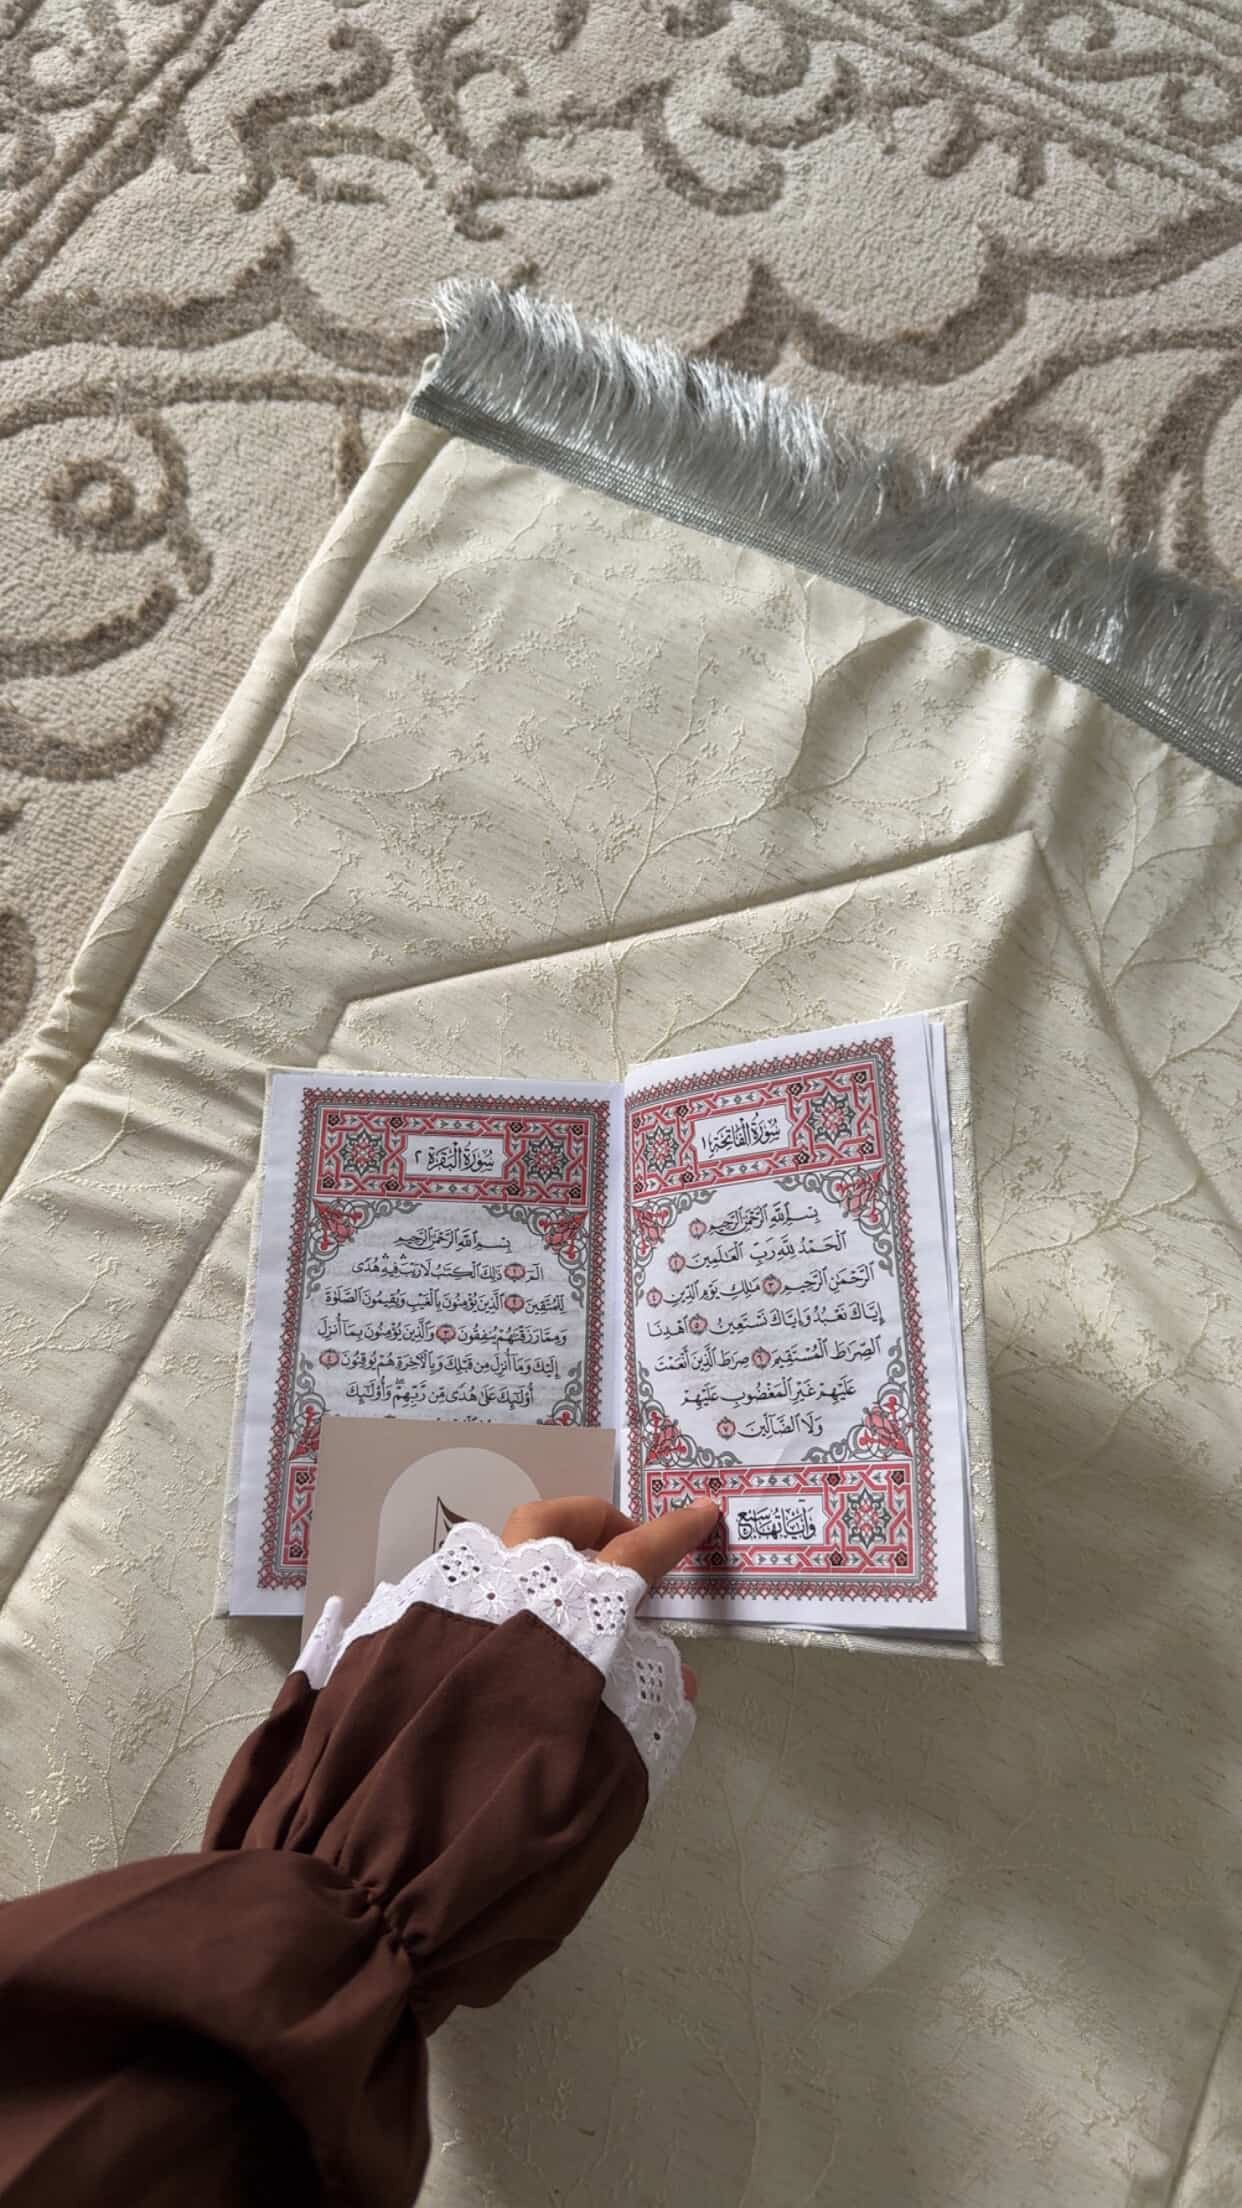 سُورَةُ ٱلْفَاتِحَةِ ١
بِسْمِ ٱللَّهِ ٱلرَّحْمَٰنِ ٱلرَّحِيمِ ١
ٱلْحَمْدُ لِلَّهِ رَبِّ ٱلْعَٰلَمِينَ ٢
ٱلرَّحْمَٰنِ ٱلرَّحِيمِ ٣ مَٰلِكِ يَوْمِ ٱلدِّينِ ٤
إِيَّاكَ نَعْبُدُ وَإِيَّاكَ نَسْتَعِينُ ٥ ٱهْدِنَا
ٱلصِّرَٰطَ ٱلْمُسْتَقِيمَ ٦ صِرَٰطَ ٱلَّذِينَ أَنْعَمْتَ
عَلَيْهِمْ غَيْرِ ٱلْمَغْضُوبِ عَلَيْهِمْ
وَلَا ٱلضَّآلِّينَ ٧
وَآيَاتُهَا سَبْعٌ
سُورَةُ ٱلْبَقَرَةِ ٢
بِسْمِ ٱللَّهِ ٱلرَّحْمَٰنِ ٱلرَّحِيمِ
الٓمٓ ١ ذَٰلِكَ ٱلْكِتَٰبُ لَا رَيْبَ ۛ فِيهِ ۛ هُدًى
لِّلْمُتَّقِينَ ٢ ٱلَّذِينَ يُؤْمِنُونَ بِٱلْغَيْبِ وَيُقِيمُونَ ٱلصَّلَوٰةَ
وَمِمَّا رَزَقْنَٰهُمْ يُنفِقُونَ ٣ وَٱلَّذِينَ يُؤْمِنُونَ بِمَآ أُنزِلَ
إِلَيْكَ وَمَآ أُنزِلَ مِن قَبْلِكَ وَبِٱلْءَاخِرَةِ هُمْ يُوقِنُونَ ٤
أُو۟لَٰٓئِكَ عَلَىٰ هُدًى مِّن رَّبِّهِمْ ۖ وَأُو۟لَٰٓئِكَ